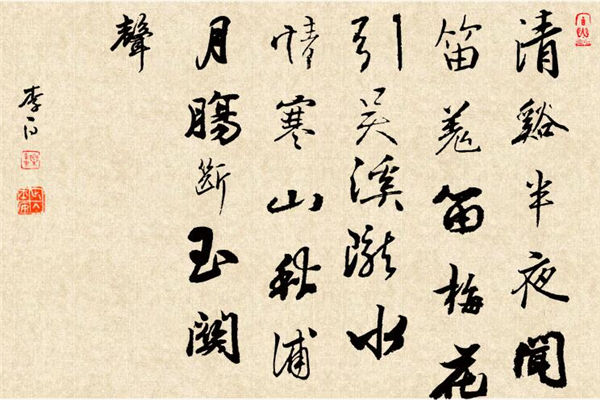 清谿半夜聞
笛羌笛梅花
引吴溪隴水
情寒山秋浦
月腸断玉關
聲
李白